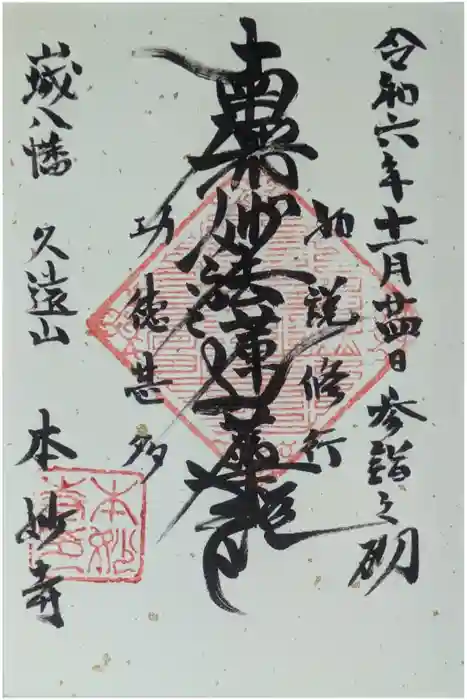 令和六年十一月廿四日 参詣之砌
如説修行
南無妙法蓮華経
功徳甚多
城八幡 久遠山
本妙寺